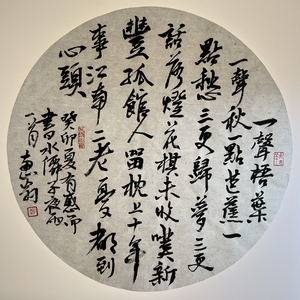 一聲梧葉
一聲秋一點芭蕉一
點愁三更歸夢三更
後落燈花棋未收嘆新
豐孤館人留枕上十年
事江南二老憂都到
心頭
癸卯夏有感而
書水仙子夜雨